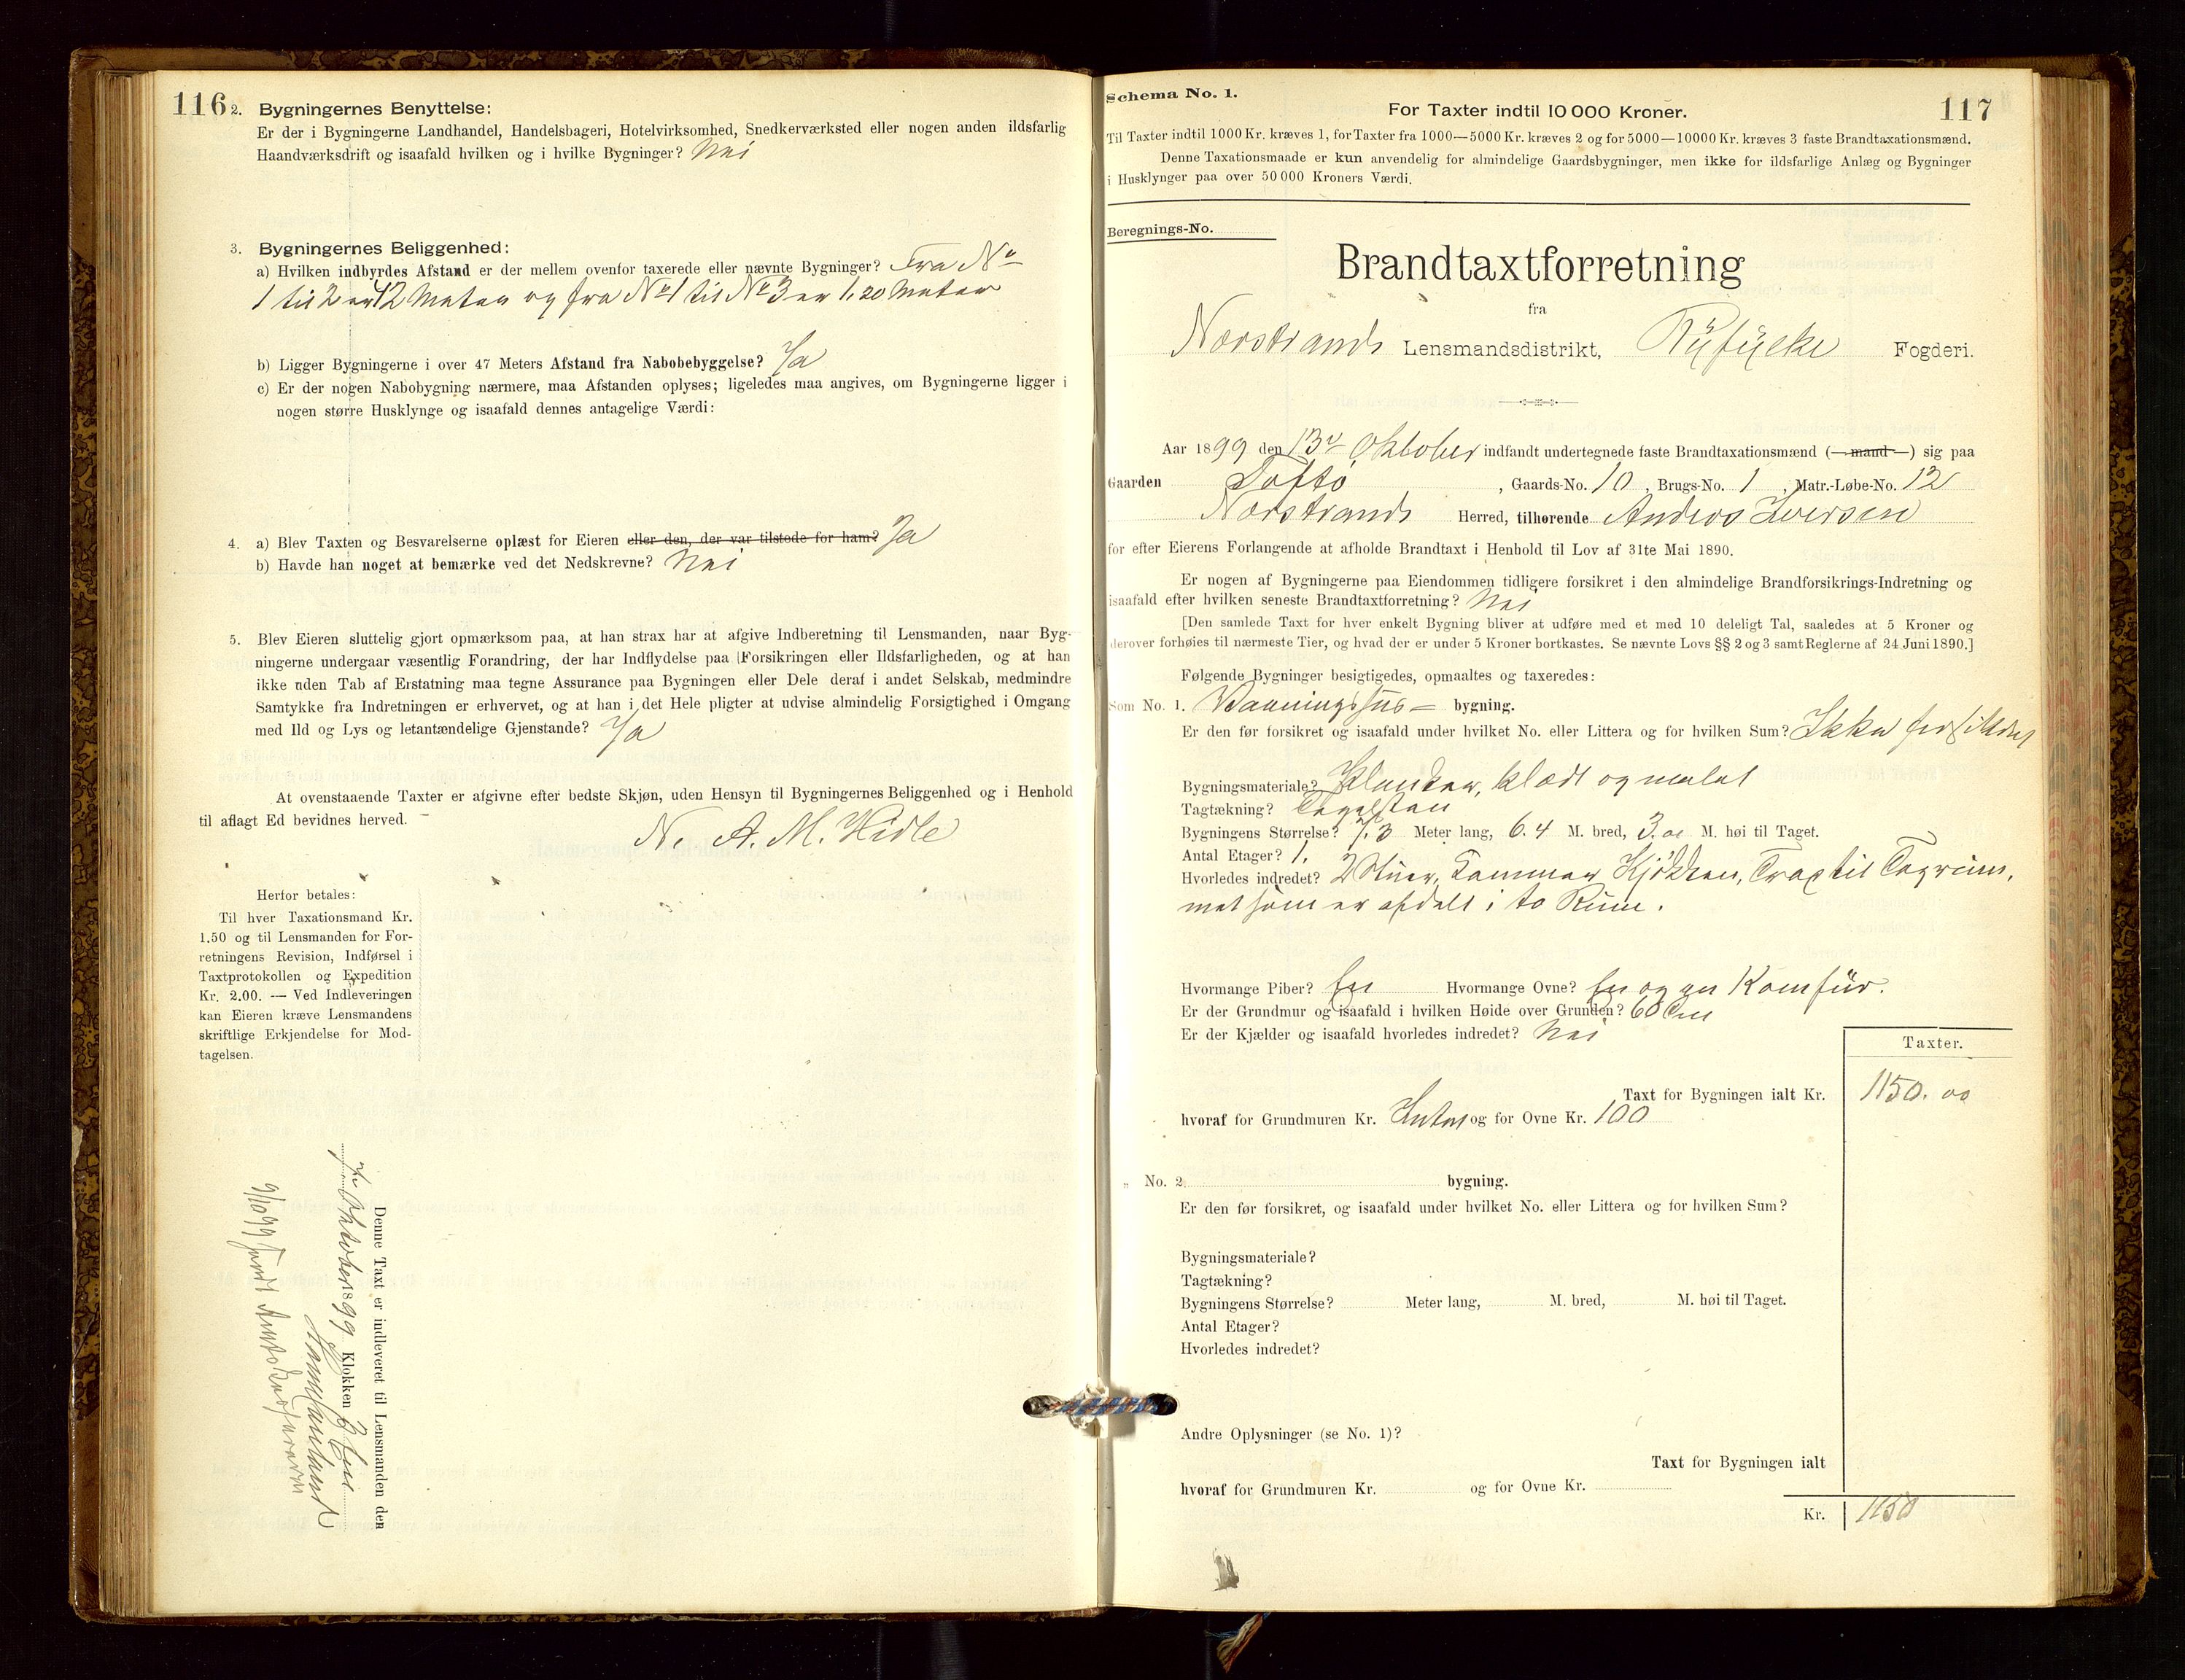 116
2. Bygningernes Benyttelse:
Er der i Bygningerne Landhandel, Handelsbageri, Hotelvirksomhed, Snedkerværksted eller nogen anden ildsfarlig
Haandværksdrift og isaafald hvilken og i hvilke Bygninger? Nei
3. Bygningernes Beliggenhed:
a) Hvilken indbyrdes Afstand er der mellem ovenfor taxerede eller nævnte Bygninger? Fra No
1 til 2 er 12 Meter og fra No 1 til No 3 er 1,20 Meter
b) Ligger Bygningerne i over 47 Meters Afstand fra Nabobebyggelse? Ja
c) Er der nogen Nabobygning nærmere, maa Afstanden oplyses; ligeledes maa angives, om Bygningerne ligger i
nogen større Husklynge og isaafald dennes antagelige Værdi:
4. a) Blev Taxten og Besvarelserne oplæst for Eieren eller den, der var tilstede for ham? Ja
b) Havde han noget at bemærke ved det Nedskrevne? Nei
5. Blev Eieren sluttelig gjort opmærksom paa, at han strax har at afgive Indberetning til Lensmanden, naar Byg-
ningerne undergaar væsentlig Forandring, der har Indflydelse paa Forsikringen eller Ildsfarligheden, og at han
ikke uden Tab af Erstatning maa tegne Assurance paa Bygningen eller Dele deraf i andet Selskab, medmindre
Samtykke fra Indretningen er erhvervet, og at han i det Hele pligter at udvise almindelig Forsigtighed i Omgang
med Ild og Lys og letantændelige Gjenstande? Ja
At ovenstaaende Taxter er afgivne efter bedste Skjøn, uden Hensyn til Bygningernes Beliggenhed og i Henhold
til aflagt Ed bevidnes herved.
N. A. M. Hidle
Herfor betales:
Til hver Taxationsmand Kr.
1.50 og til Lensmanden for For-
retningens Revision, Indførsel i
Taxtprotokollen og Expedition
Kr. 2.00. — Ved Indleveringen
kan Eieren kræve Lensmandens
skriftlige Erkjendelse for Mod-
tagelsen.
Denne Taxt er indleveret til Lensmanden den
7de Oktober 1899 Klokken 3 Em
9/10 99
Schema No. 1.
For Taxter indtil 10 000 Kroner.
117
Til Taxter indtil 1000 Kr. kræves 1, for Taxter fra 1000—5000 Kr. kræves 2 og for 5000—10000 Kr. kræves 3 faste Brandtaxationsmænd.
Denne Taxationsmaade er kun anvendelig for almindelige Gaardsbygninger, men ikke for ildsfarlige Anlæg og Bygninger
i Husklynger paa over 50 000 Kroners Værdi.
Beregnings-No.
Brandtaxtforretning
fra
Nærstrands Lensmandsdistrikt, Ryfylke Fogderi.
Aar 1899 den 13de Oktober indfandt undertegnede faste Brandtaxationsmænd (—mand—) sig paa
Gaarden Toftø, Gaards-No. 10, Brugs-No. 1, Matr.-Løbe-No. 12
Nærstrands Herred, tilhørende Anders Iversen
for efter Eierens Forlangende at afholde Brandtaxt i Henhold til Lov af 31te Mai 1890.
Er nogen af Bygningerne paa Eiendommen tidligere forsikret i den almindelige Brandforsikrings-Indretning og
isaafald efter hvilken seneste Brandtaxtforretning? Nei
[Den samlede Taxt for hver enkelt Bygning bliver at udføre med et med 10 deleligt Tal, saaledes at 5 Kroner og
derover forhøies til nærmeste Tier, og hvad der er under 5 Kroner bortkastes. Se nævnte Lovs §§ 2 og 3 samt Reglerne af 24 Juni 1890.]
Følgende Bygninger besigtigedes, opmaaltes og taxeredes:
Som No. 1. Vaaningshus- bygning.
Er den før forsikret og isaafald under hvilket No. eller Littera og for hvilken Sum? Ikke forsikret
Bygningsmateriale? Planker, klædt og malet
Tagtækning? Tagsten
Bygningens Størrelse? 7.3 Meter lang, 6.4 M. bred, 3.oo M. høi til Taget.
Antal Etager? 1.
Hvorledes indredet? 2 Stuer, Kammer, Kjøkken, Trap til Tagrum,
met som er afdelt i to Rum.
Hvormange Piber? En Hvormange Ovne? En og en Komfür.
Er der Grundmur og isaafald i hvilken Høide over Grunden? 60 Cm
Er der Kjælder og isaafald hvorledes indredet? Nei
Taxter.
Taxt for Bygningen ialt Kr. 1150. oo
hvoraf for Grundmuren Kr. Intet og for Ovne Kr. 100
„ No. 2. bygning.
Er den før forsikret, og isaafald under hvilket No. eller Littera og for hvilken Sum?
Bygningsmateriale?
Tagtækning?
Bygningens Størrelse? Meter lang, M. bred, M. høi til Taget.
Antal Etager?
Hvorledes indredet?
Andre Oplysninger (se No. 1)?
Taxt for Bygningen ialt
hvoraf for Grundmuren Kr. og for Ovne Kr.
Kr. 1150